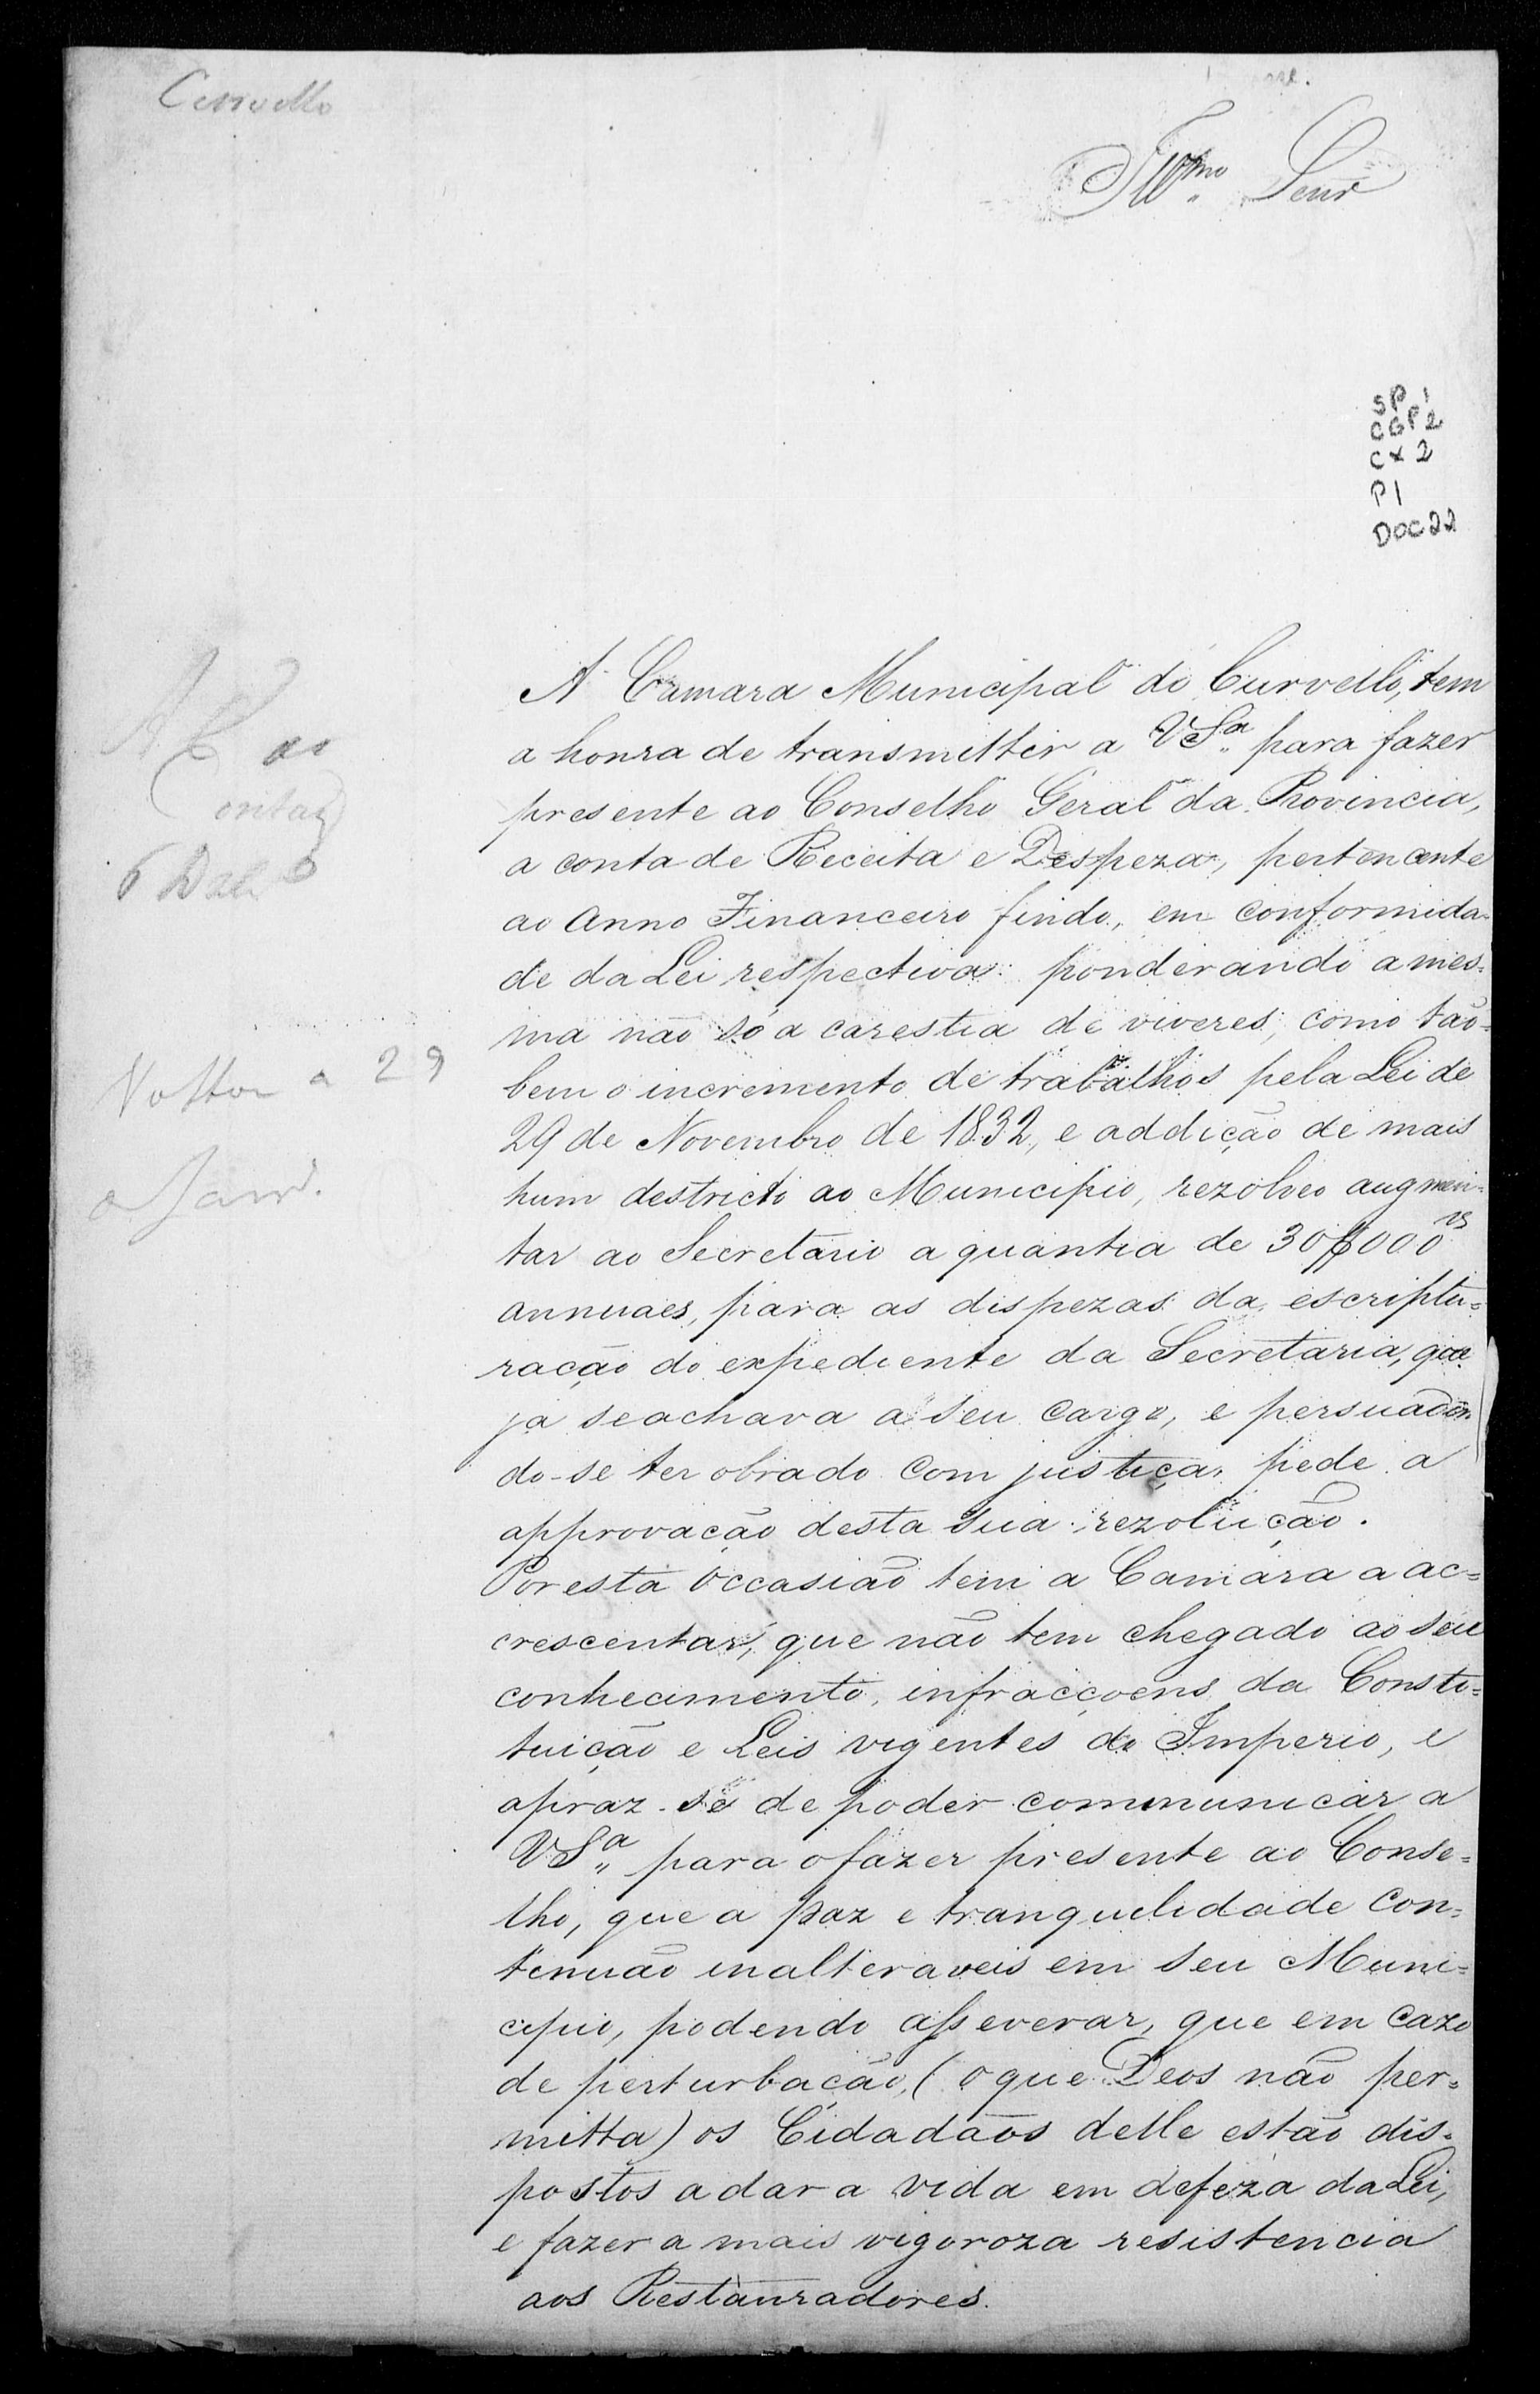 Curvello
Illmo Senr
SP 1
CGP 2
CX 2
P1
DOC 22
A Camara Municipal do Curvello, tem
a honra de transmittir a VSa para fazer
presente ao Conselho Geral da Provincia,
a conta de Receita e Despeza, pertencente
ao Anno Financeiro findo, em conformida-
de da Lei respectiva: ponderando a mes-
ma não só a carestia de viveres, como tão-
bem o incremento de trabalhos pela Lei de
29 de Novembro de 1832, e addição de mais
hum destricto ao Municipio, rezolveo augmen-
tar ao Secretario a quantia de 30$000rs
annuaes, para as dispezas da escriptu=
ração do expediente da Secretaria, que
ja seachava a seu cargo, e persuadin
do-se ter obrado com justiça, pede a
approvação desta sua rezolução.
Por esta occasião tem a Camara a ac=
crescentar, que não tem chegado ao seu
conhecimento, infracçoens da Consti=
tuição e Leis vigentes do Imperio, e
apraz-se de poder communicar a
VSa para o fazer presente ao Conse=
lho, que a paz e tranquilidade con=
tinuão inalteraveis em seu Muni=
cipio, podendo asseverar, que em cazo
de perturbação, (o que Deos não per=
mitta) os Cidadãos delle estão dis=
postos a dar a vida em defeza da Lei,
e fazer a mais vigoroza resistencia
aos Restauradores.
A C. as
Contas
6 Dezbro
Voltou a 29